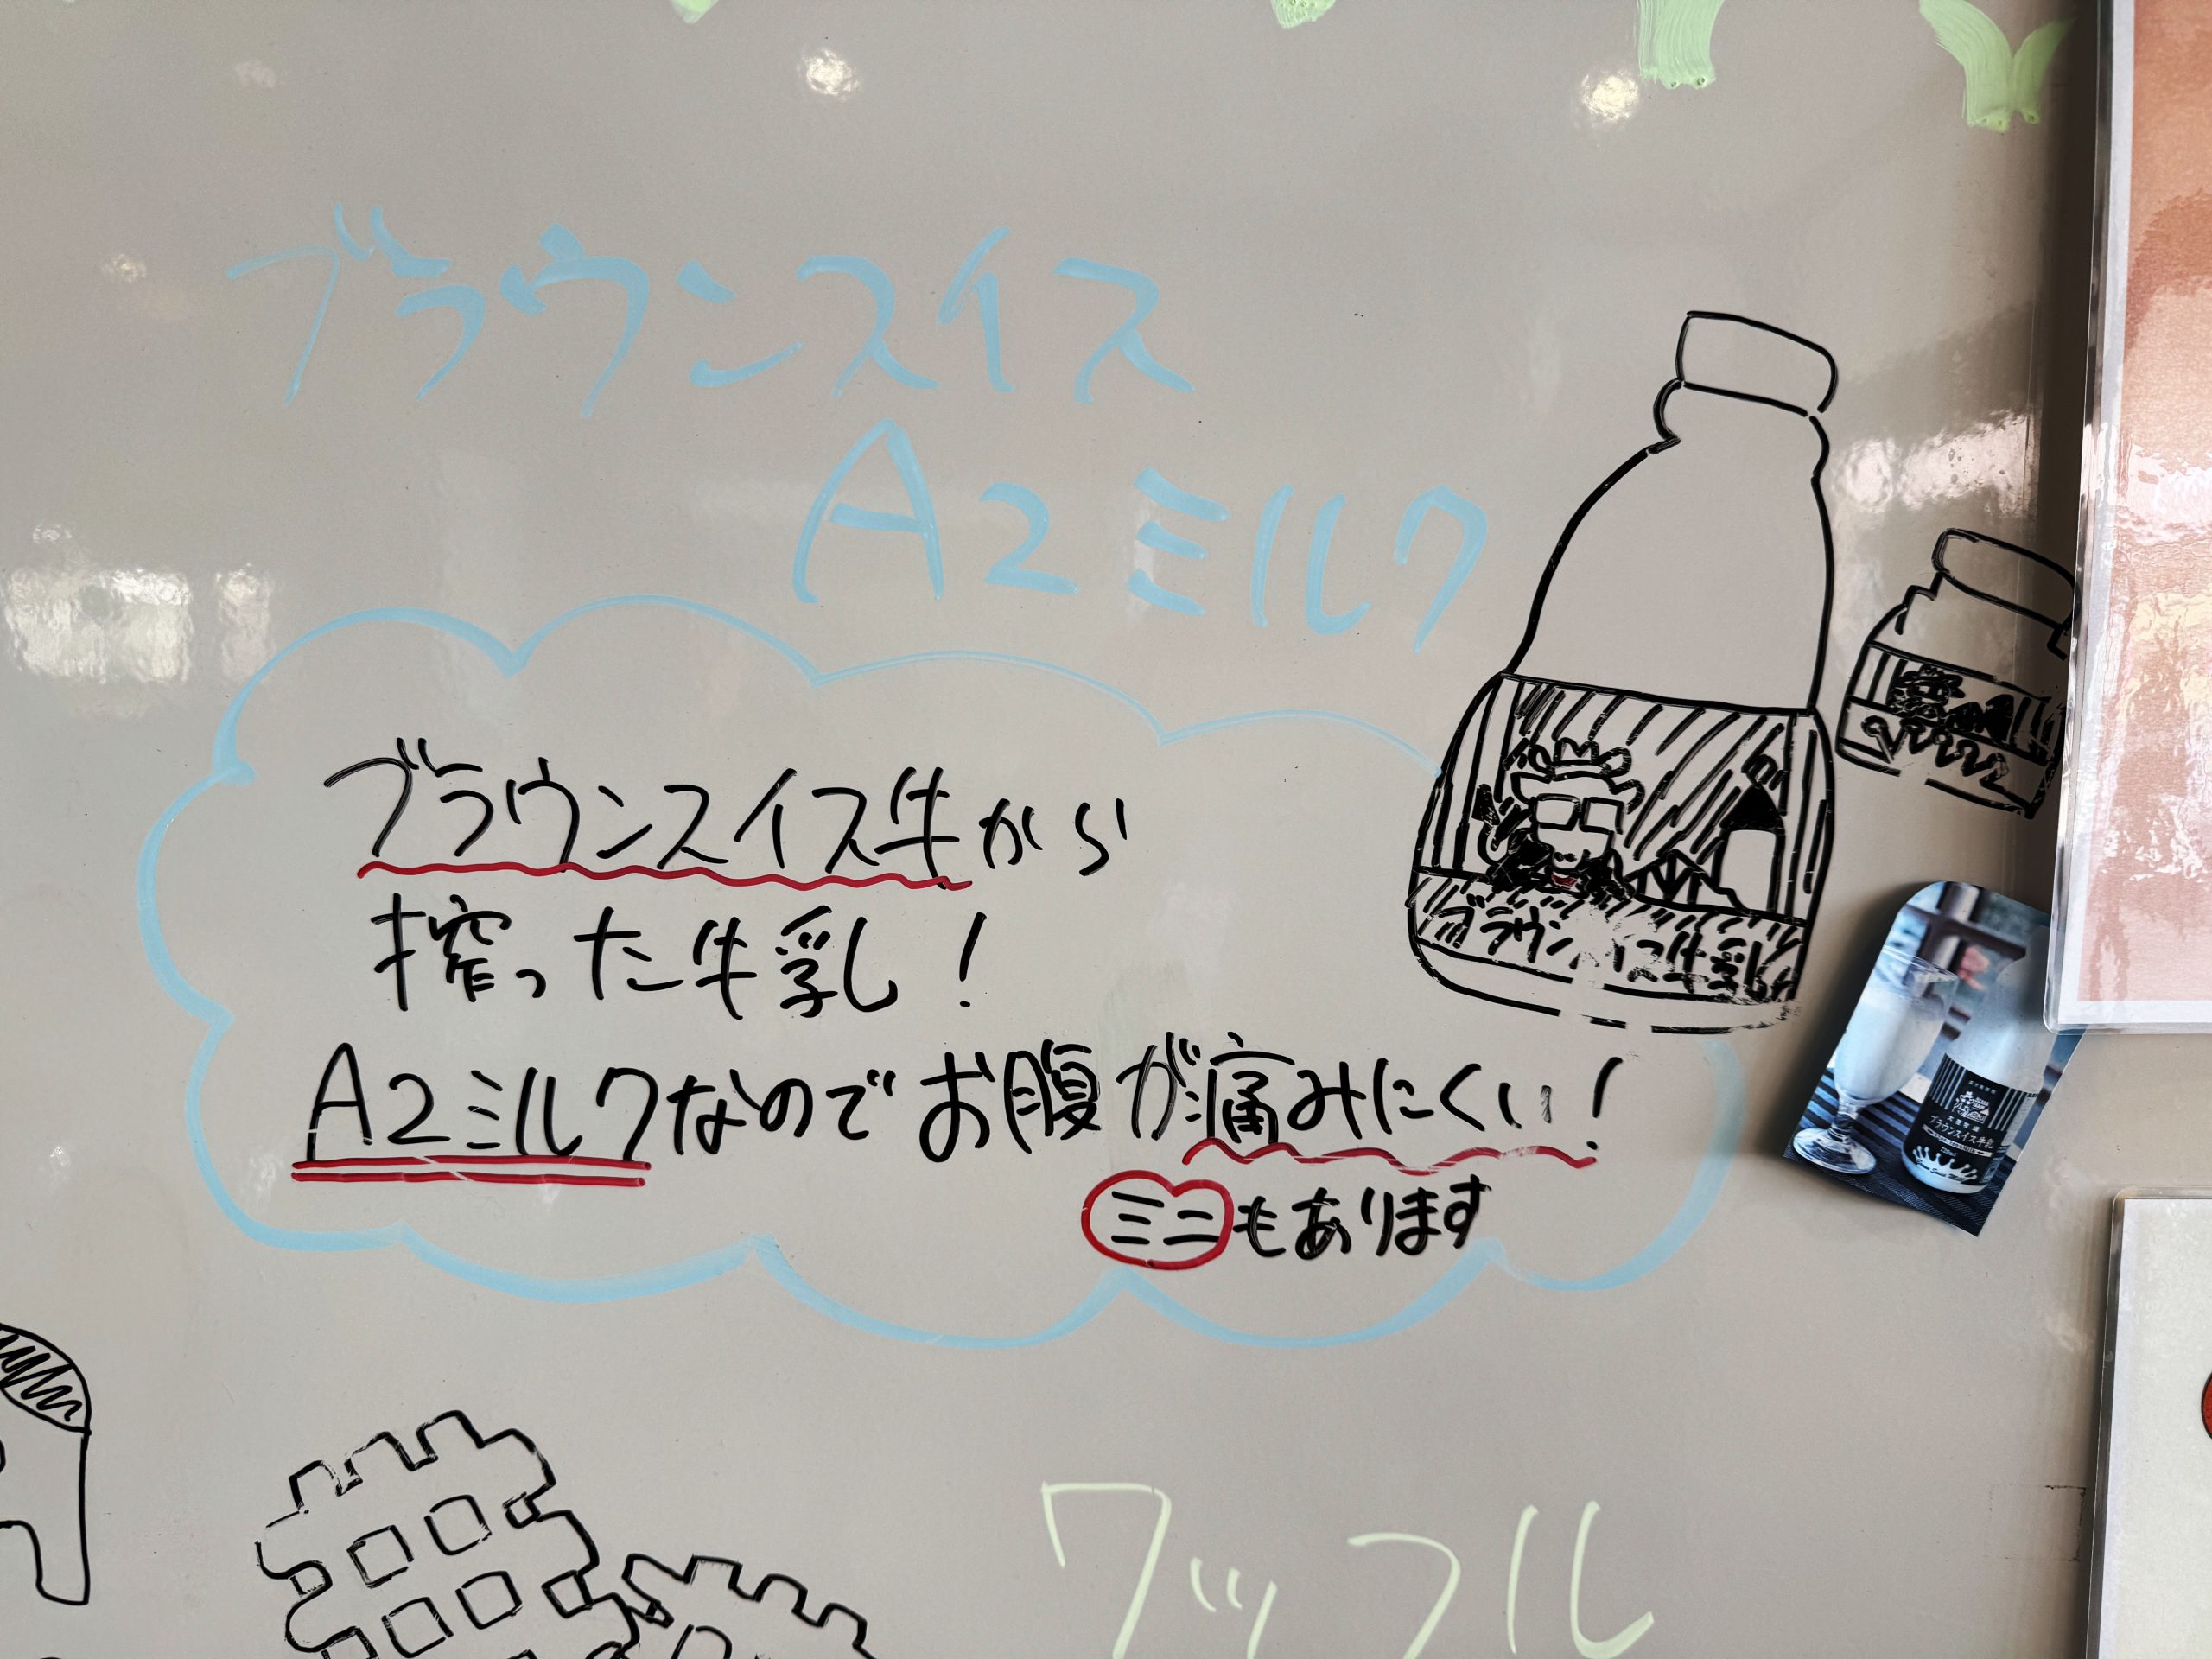 ブラウンスイス
A2ミルク
ブラウンスイス牛から
搾った牛乳!
A2ミルクなのでお腹が痛みにくい!
ミニもあります
ブラウンスイス牛乳
ワッフル